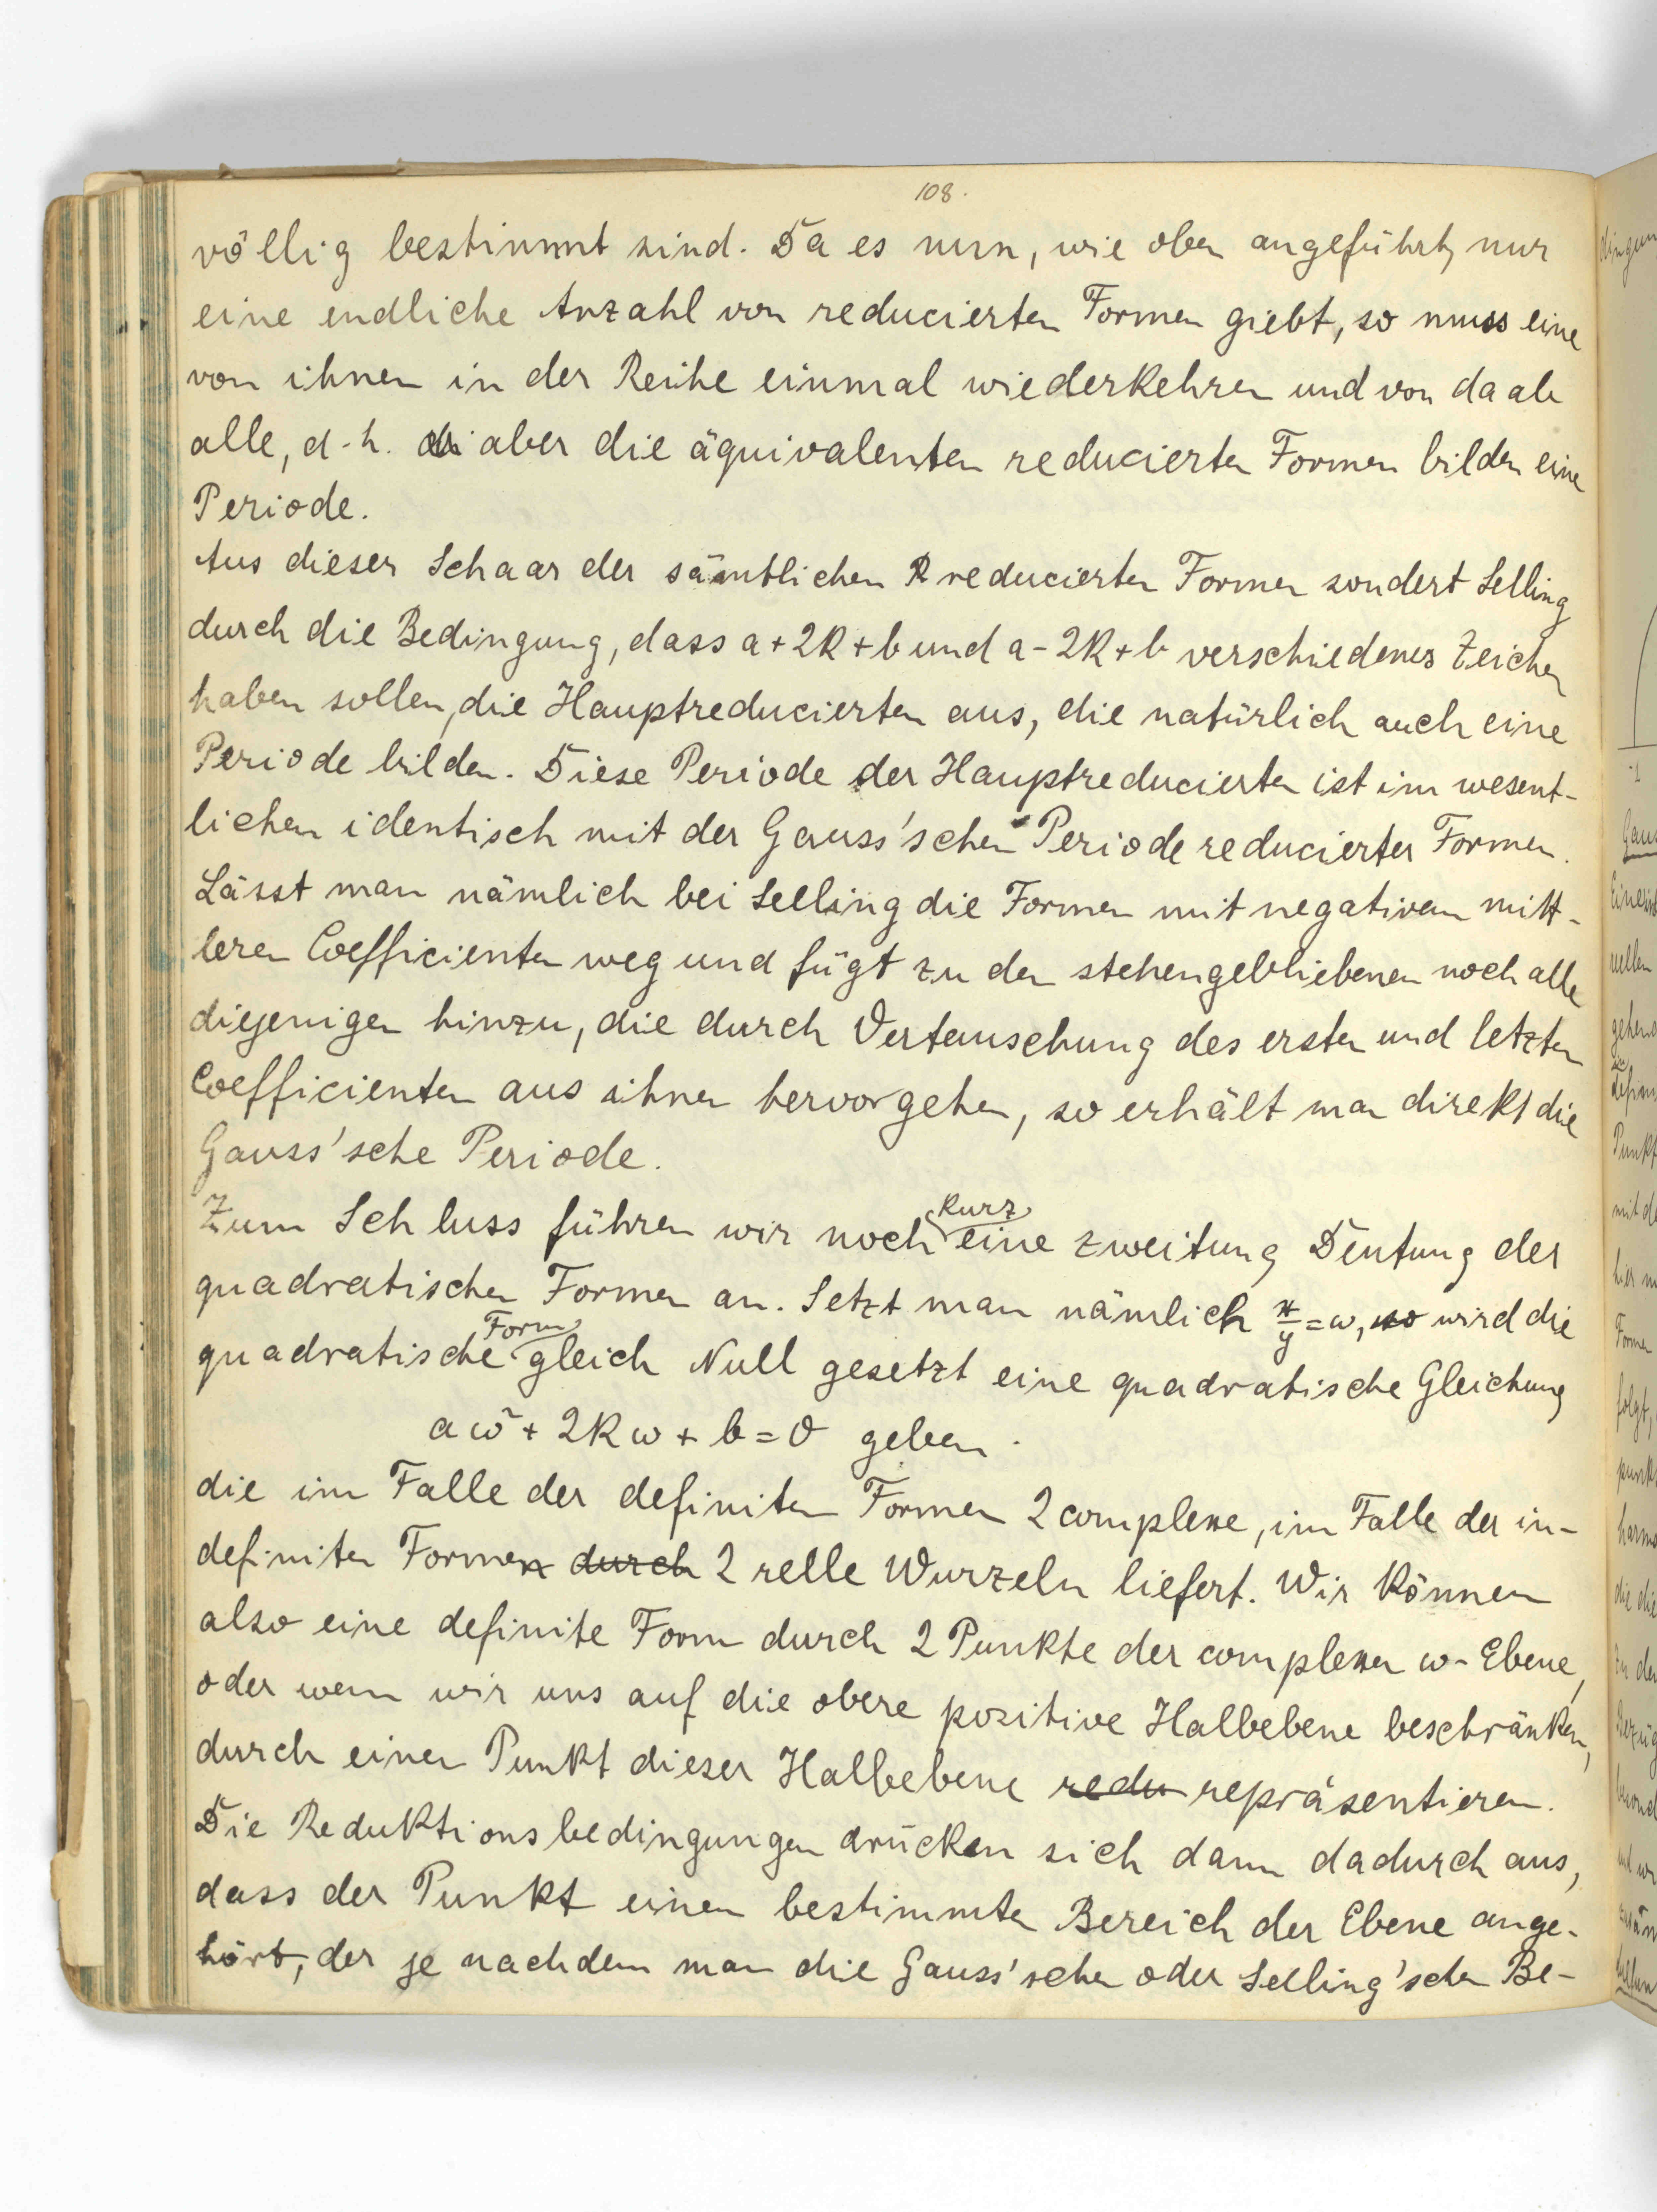 108.
völlig bestimmt sind. Da es nun, wie oben angeführt, nur
eine endliche Anzahl von reducierten Formen giebt, so muss eine
von ihnen in der Reihe einmal wiederkehren und von da ab
alle, d.h. aber die äquivalenten reducierten Formen bilden eine
Periode.
Aus dieser Schaar der sämtlichen reducierten Formen sondert Selling
durch die Bedingung, dass a + 2k + b und a - 2k + b verschiedenes Zeichen
haben sollen, die Hauptreducierten aus, die natürlich auch eine
Periode bilden. Diese Periode der Hauptreducierten ist im wesent-
lichen identisch mit der Gauss'schen Periode reducierter Formen.
Lässt man nämlich bei Selling die Formen mit negativem mitt-
leren Coefficienten weg und fügt zu den stehengebliebenen noch alle
diejenigen hinzu, die durch Vertauschung des ersten und letzten
Coefficienten aus ihnen hervorgehen, so erhält man direkt die
Gauss'sche Periode.
Zum Schluss führen wir noch kurz eine zweitung Deutung der
quadratischen Formen an. Setzt man nämlich x/y = ω, so wird die
quadratische Form gleich Null gesetzt eine quadratische Gleichung
aω² + 2kω + b = 0 geben.
die im Falle der definiten Formen 2 complexe, im Falle der in-
definiten Formen durch 2 relle Wurzeln liefert. Wir können
also eine definite Form durch 2 Punkte der complexen ω-Ebene,
oder wenn wir uns auf die obere positive Halbebene beschränken,
durch einen Punkt dieser Halbebene redu repräsentieren.
Die Reduktionsbedingungen drücken sich dann dadurch aus,
dass der Punkt einen bestimmten Bereich der Ebene ange-
hört, der je nachdem man die Gauss'schen oder Selling'schen Be-